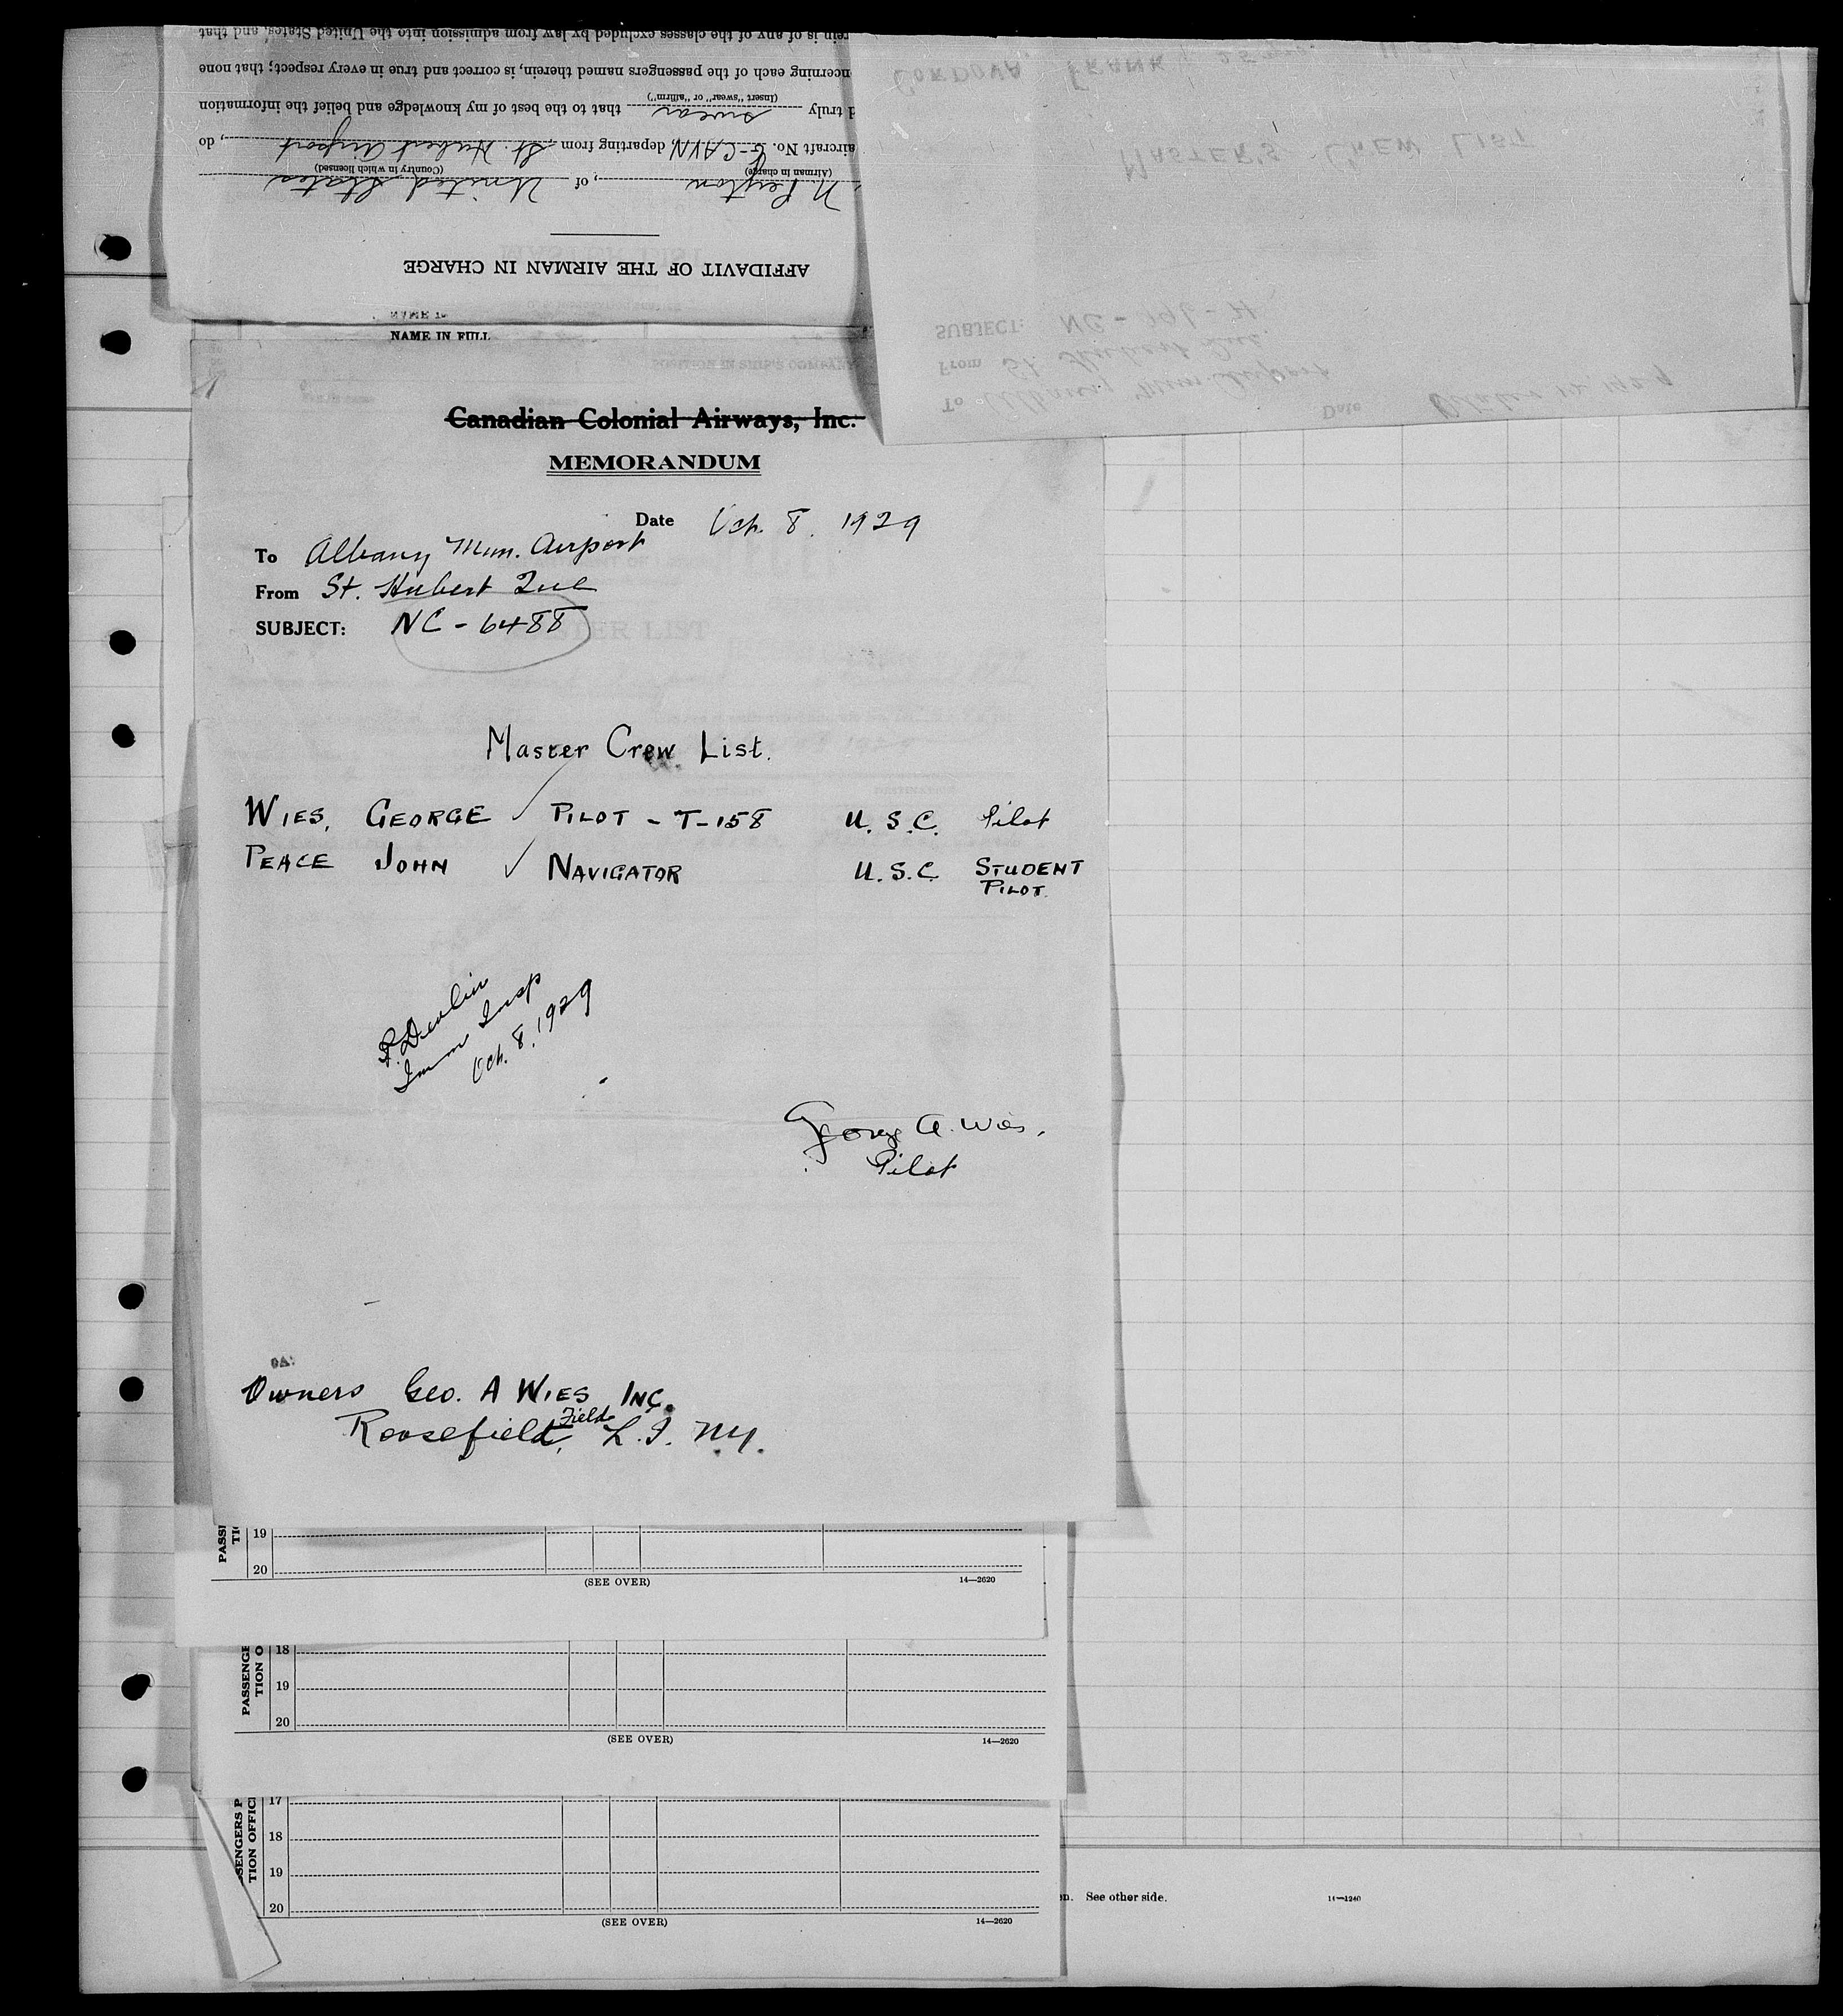 rein is of any of the classes excluded by law from admission into the United States, and that
ncerning each of the passengers named therein, is correct and true in every respect; that none
d truly swear that to the best of my knowledge and belief the information
(Insert "swear" or "affirm")
aircraft No. CAVN, departing from St. Hubert Airport, do
(Airman in charge) (Country in which licensed)
, of United States
AFFIDAVIT OF THE AIRMAN IN CHARGE
CORDOVA, FRANK
MASTER'S CREW LIST
SUBJECT: NC-
From St. Hubert Que.
To Albany Mun. Airport
Date October 1929
NAME IN FULL
Canadian Colonial Airways, Inc.
MEMORANDUM
Date Oct. 8. 1929
To Albany Mun. Airport
From St. Hubert Que
SUBJECT: NC-6488
Master Crew List.
WIES, GEORGE ✓ PILOT - T-158 U.S.C. Pilot
PEACE JOHN ✓ NAVIGATOR U.S.C. STUDENT PILOT.
P. Devlin
Imm Insp
Oct. 8. 1929
George A. Wies.
Pilot
Owners Geo. A WIES INC.
Roosefield Field, L.I. N.Y.
19
20
(SEE OVER) 14—2620
18
19
20
(SEE OVER) 14—2620
17
18
19
20
(SEE OVER) 14—2620
See other side. 14—1240